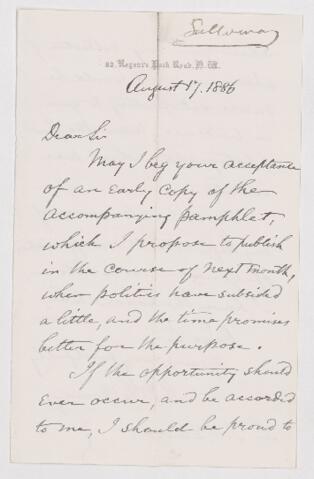 Sulloway
82, Regent's Park Road, N.W.
August 17. 1886
Dear Sir
May I beg your acceptance
of an early copy of the
accompanying pamphlet,
which I propose to publish
in the course of next month,
when politics have subsided
a little, and the time promises
better for the purpose.
If the opportunity should
ever occur, and be accorded
to me, I should be proud to